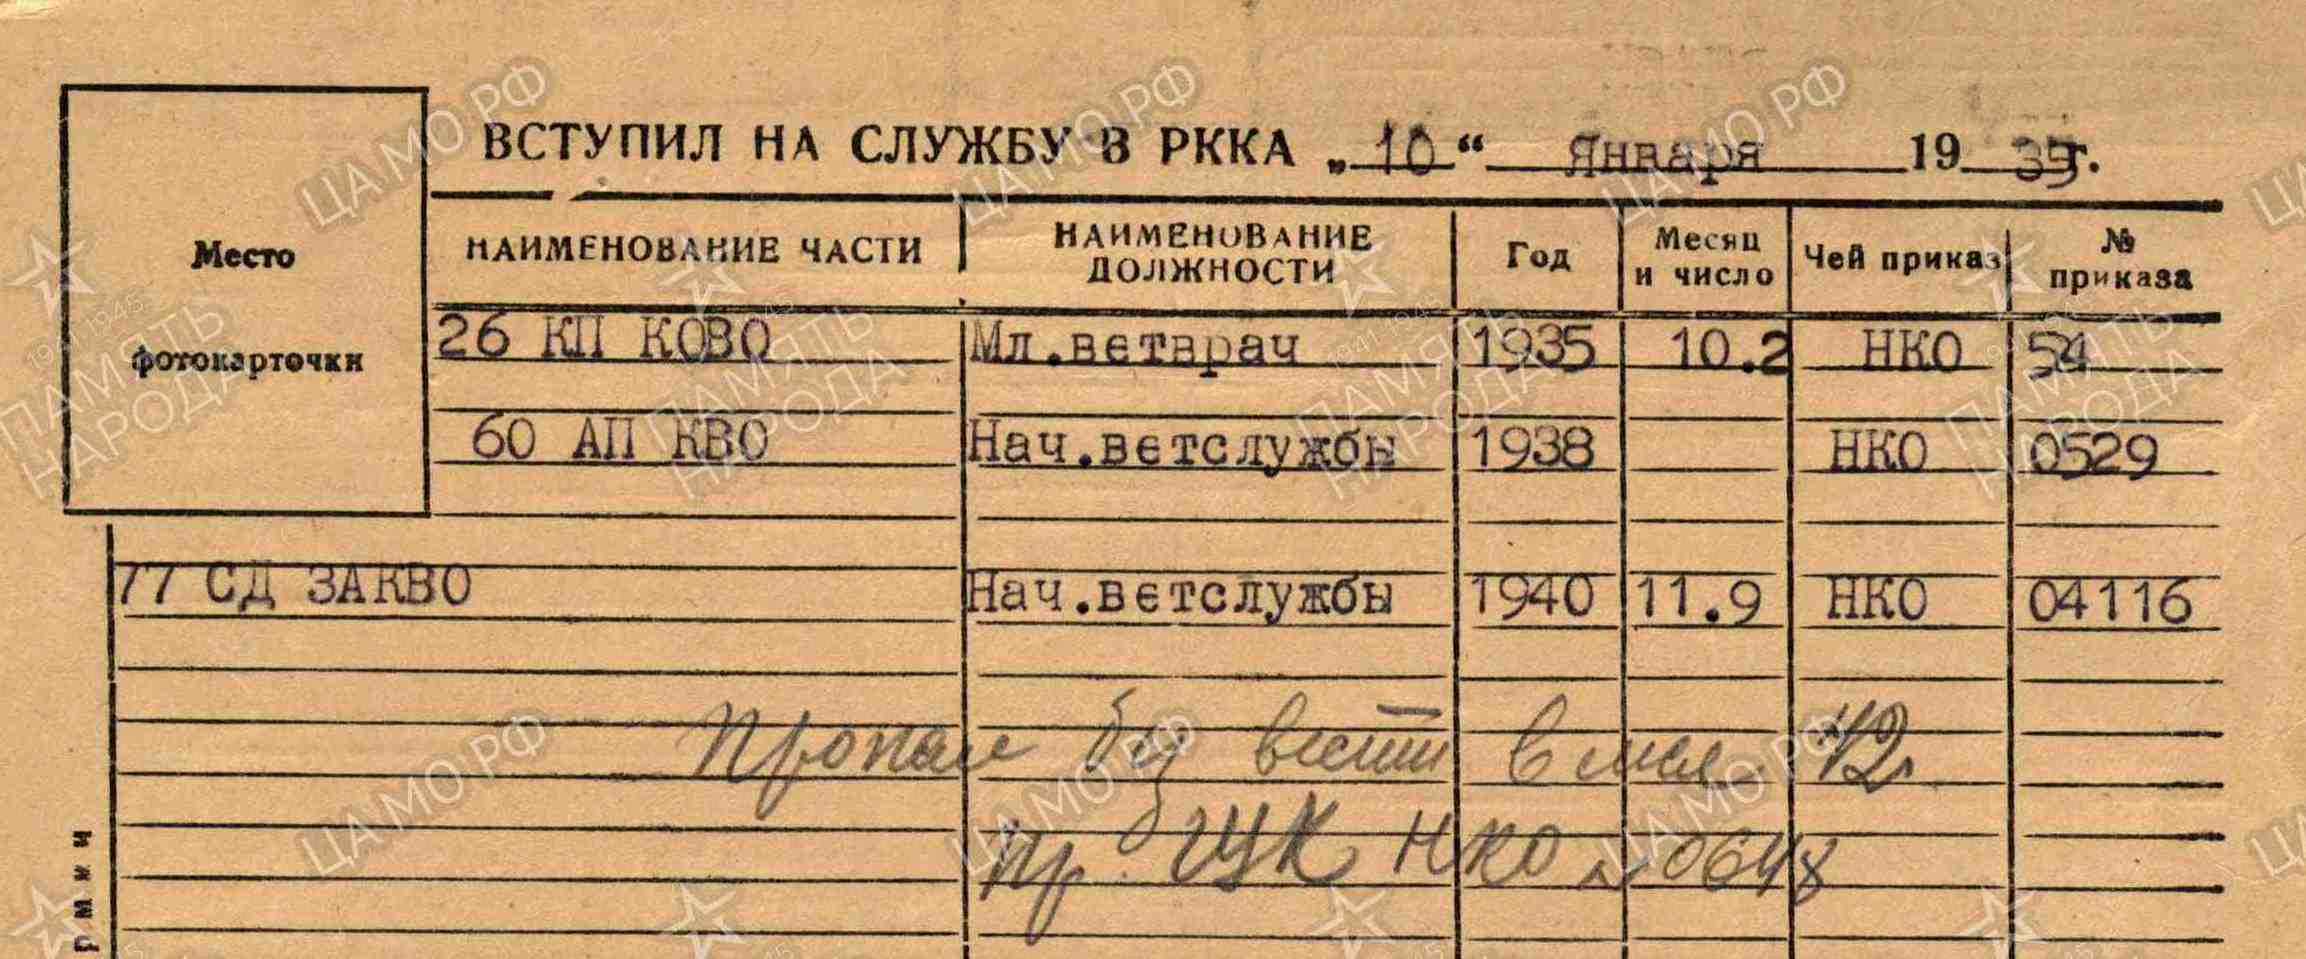 ВСТУПИЛ НА СЛУЖБУ В РККА „10“ Января 1935 г.
Место фотокарточки
НАИМЕНОВАНИЕ ЧАСТИ НАИМЕНОВАНИЕ ДОЛЖНОСТИ Год Месяц и число Чей приказ № приказа
26 КП КОВО Мл.ветврач 1935 10.2 НКО 54
60 АП КВО Нач.ветслужбы 1938 НКО 0529
77 СД ЗАКВО Нач.ветслужбы 1940 11.9 НКО 04116
Пропал без вести в мае 42г
Пр. ГУК НКО № 0648
ЦАМО.РФ
1941-1945
ПАМЯТЬ НАРОДА